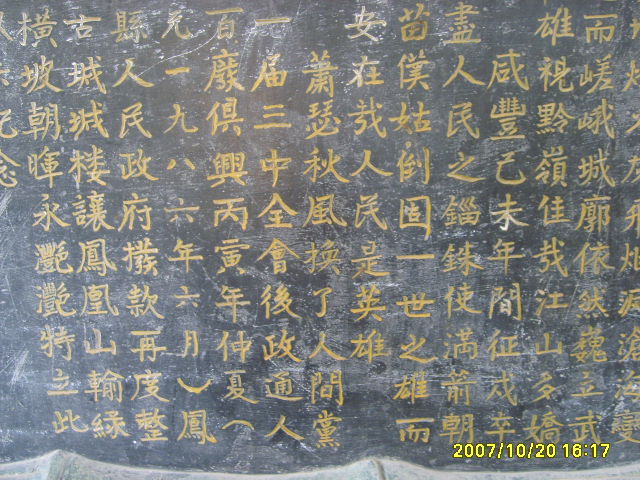 飛炮滄變
而嵯峨城廓依然巍立武
雄視黔嶺佳哉江山多嬌
咸豐己未年間征戍幸
盡人民之錙銖使滿箭朝
苗僕姑倒固一世之雄而
安在哉人民是英雄
蕭瑟秋風換了人間黨
一届三中全會後政通人
百廢俱興丙寅年仲夏（
元一九八六年六月）鳳
縣人民政府撥款再度整
古城城楼讓鳳凰山輸緑
橫坡朝暉永灧灧特立此
紀念
2007/10/20 16:17